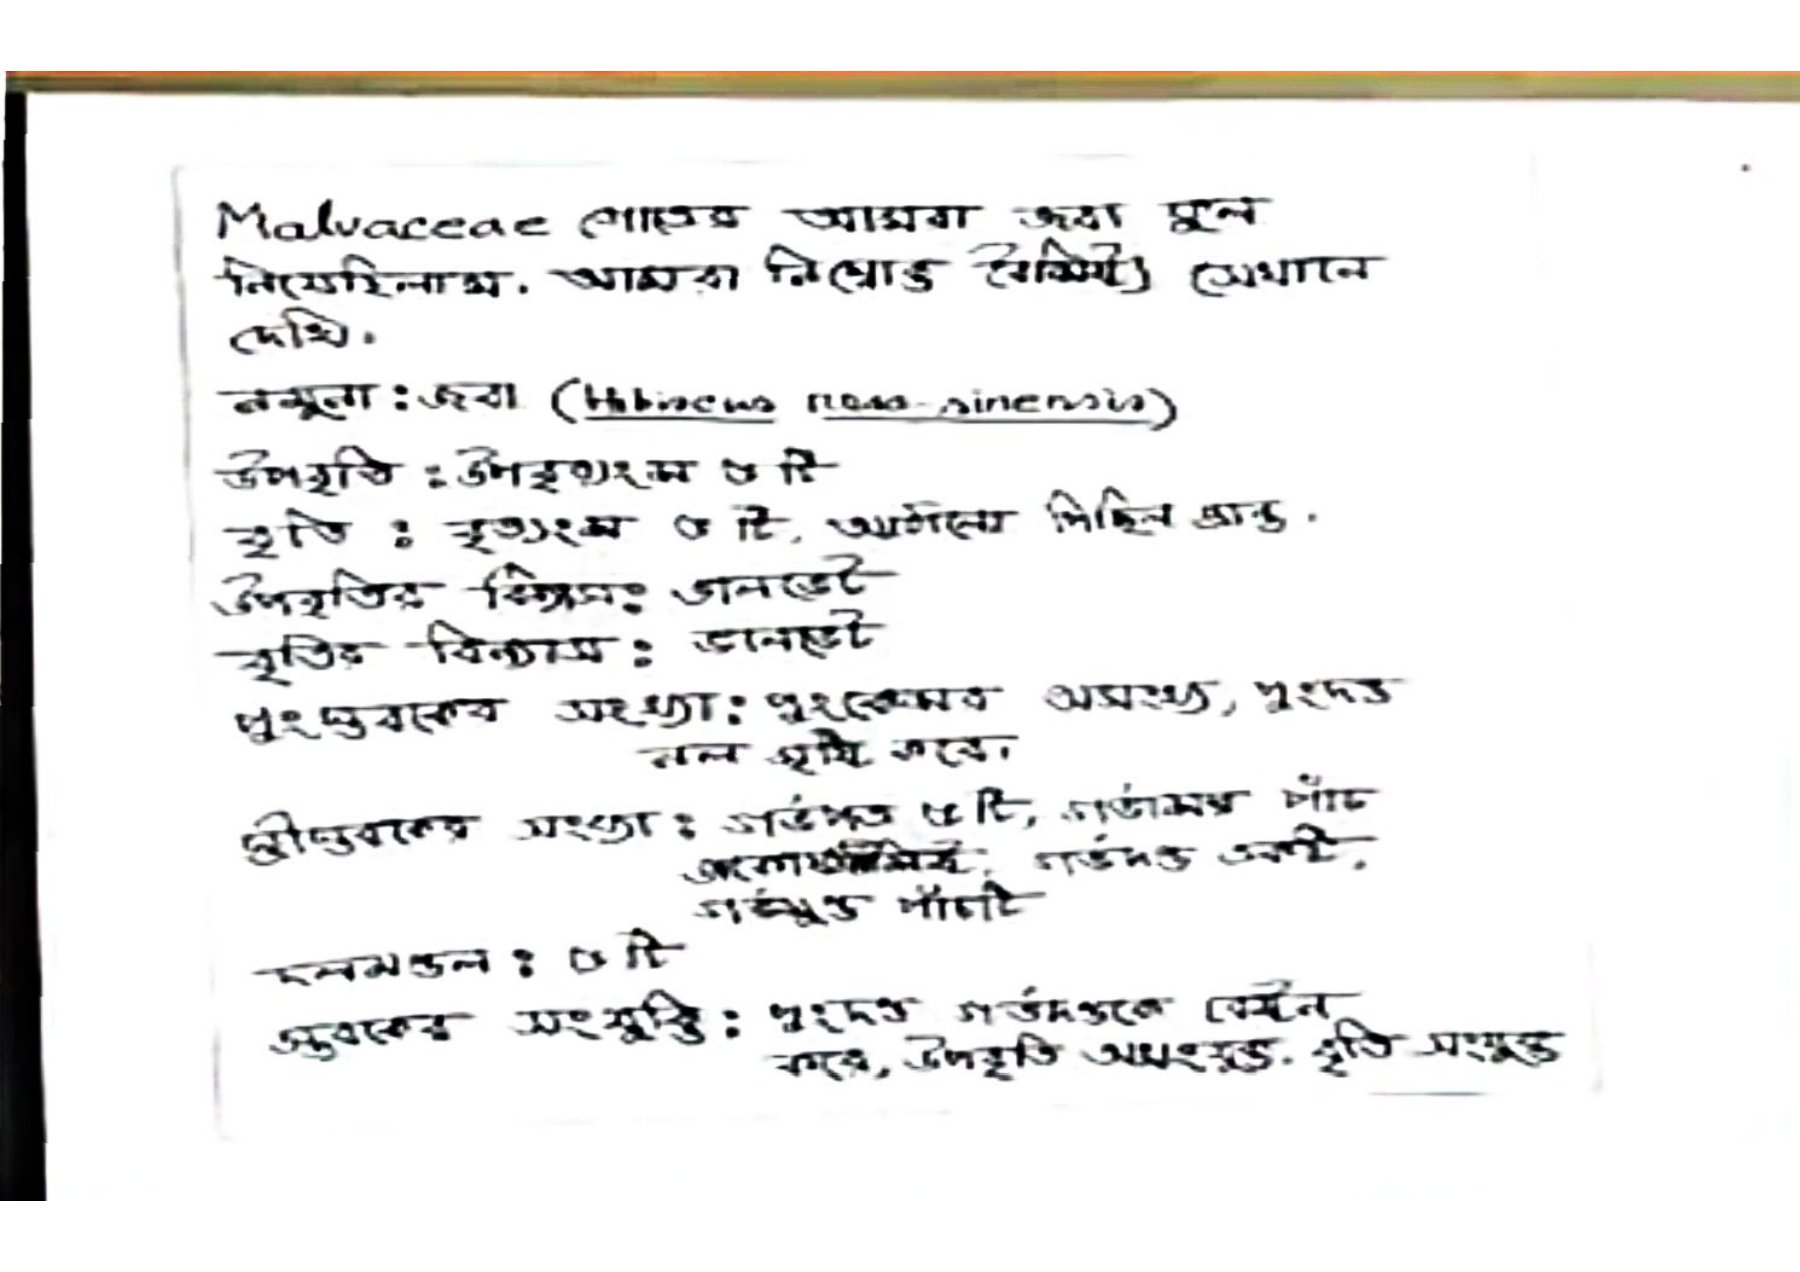 Malvaceae গোত্রের আমরা জবা ফুল
নিয়েছিলাম. আমরা নিম্নোক্ত বৈশিষ্ট্য সেখানে
দেখি.
নমুনা : জবা (Hibiscus rosa-sinensis)
উপবৃতি : উপবৃত্যংশ ৫ টি
বৃতি : বৃত্যংশ ৫ টি, আঠালো পিচ্ছিল প্রান্ত.
উপবৃতির বিন্যাস: ভালভেট
বৃতির বিন্যাস : ভালভেট
পুংস্তবকের সংখ্যা : পুংকেশর অসংখ্য, পুংদন্ড
নল সৃষ্টি করে.
স্ত্রীস্তবকের সংখ্যা : গর্ভপত্র ৫ টি, গর্ভাশয় পাঁচ
গর্ভদন্ড একটি,
গর্ভমুন্ড পাঁচটি
দলমন্ডল : ৫ টি
স্তবকের সংযুক্তি : পুংদন্ড গর্ভদন্ডকে বেষ্টন
করে, উপবৃতি অসংযুক্ত. বৃতি সংযুক্ত